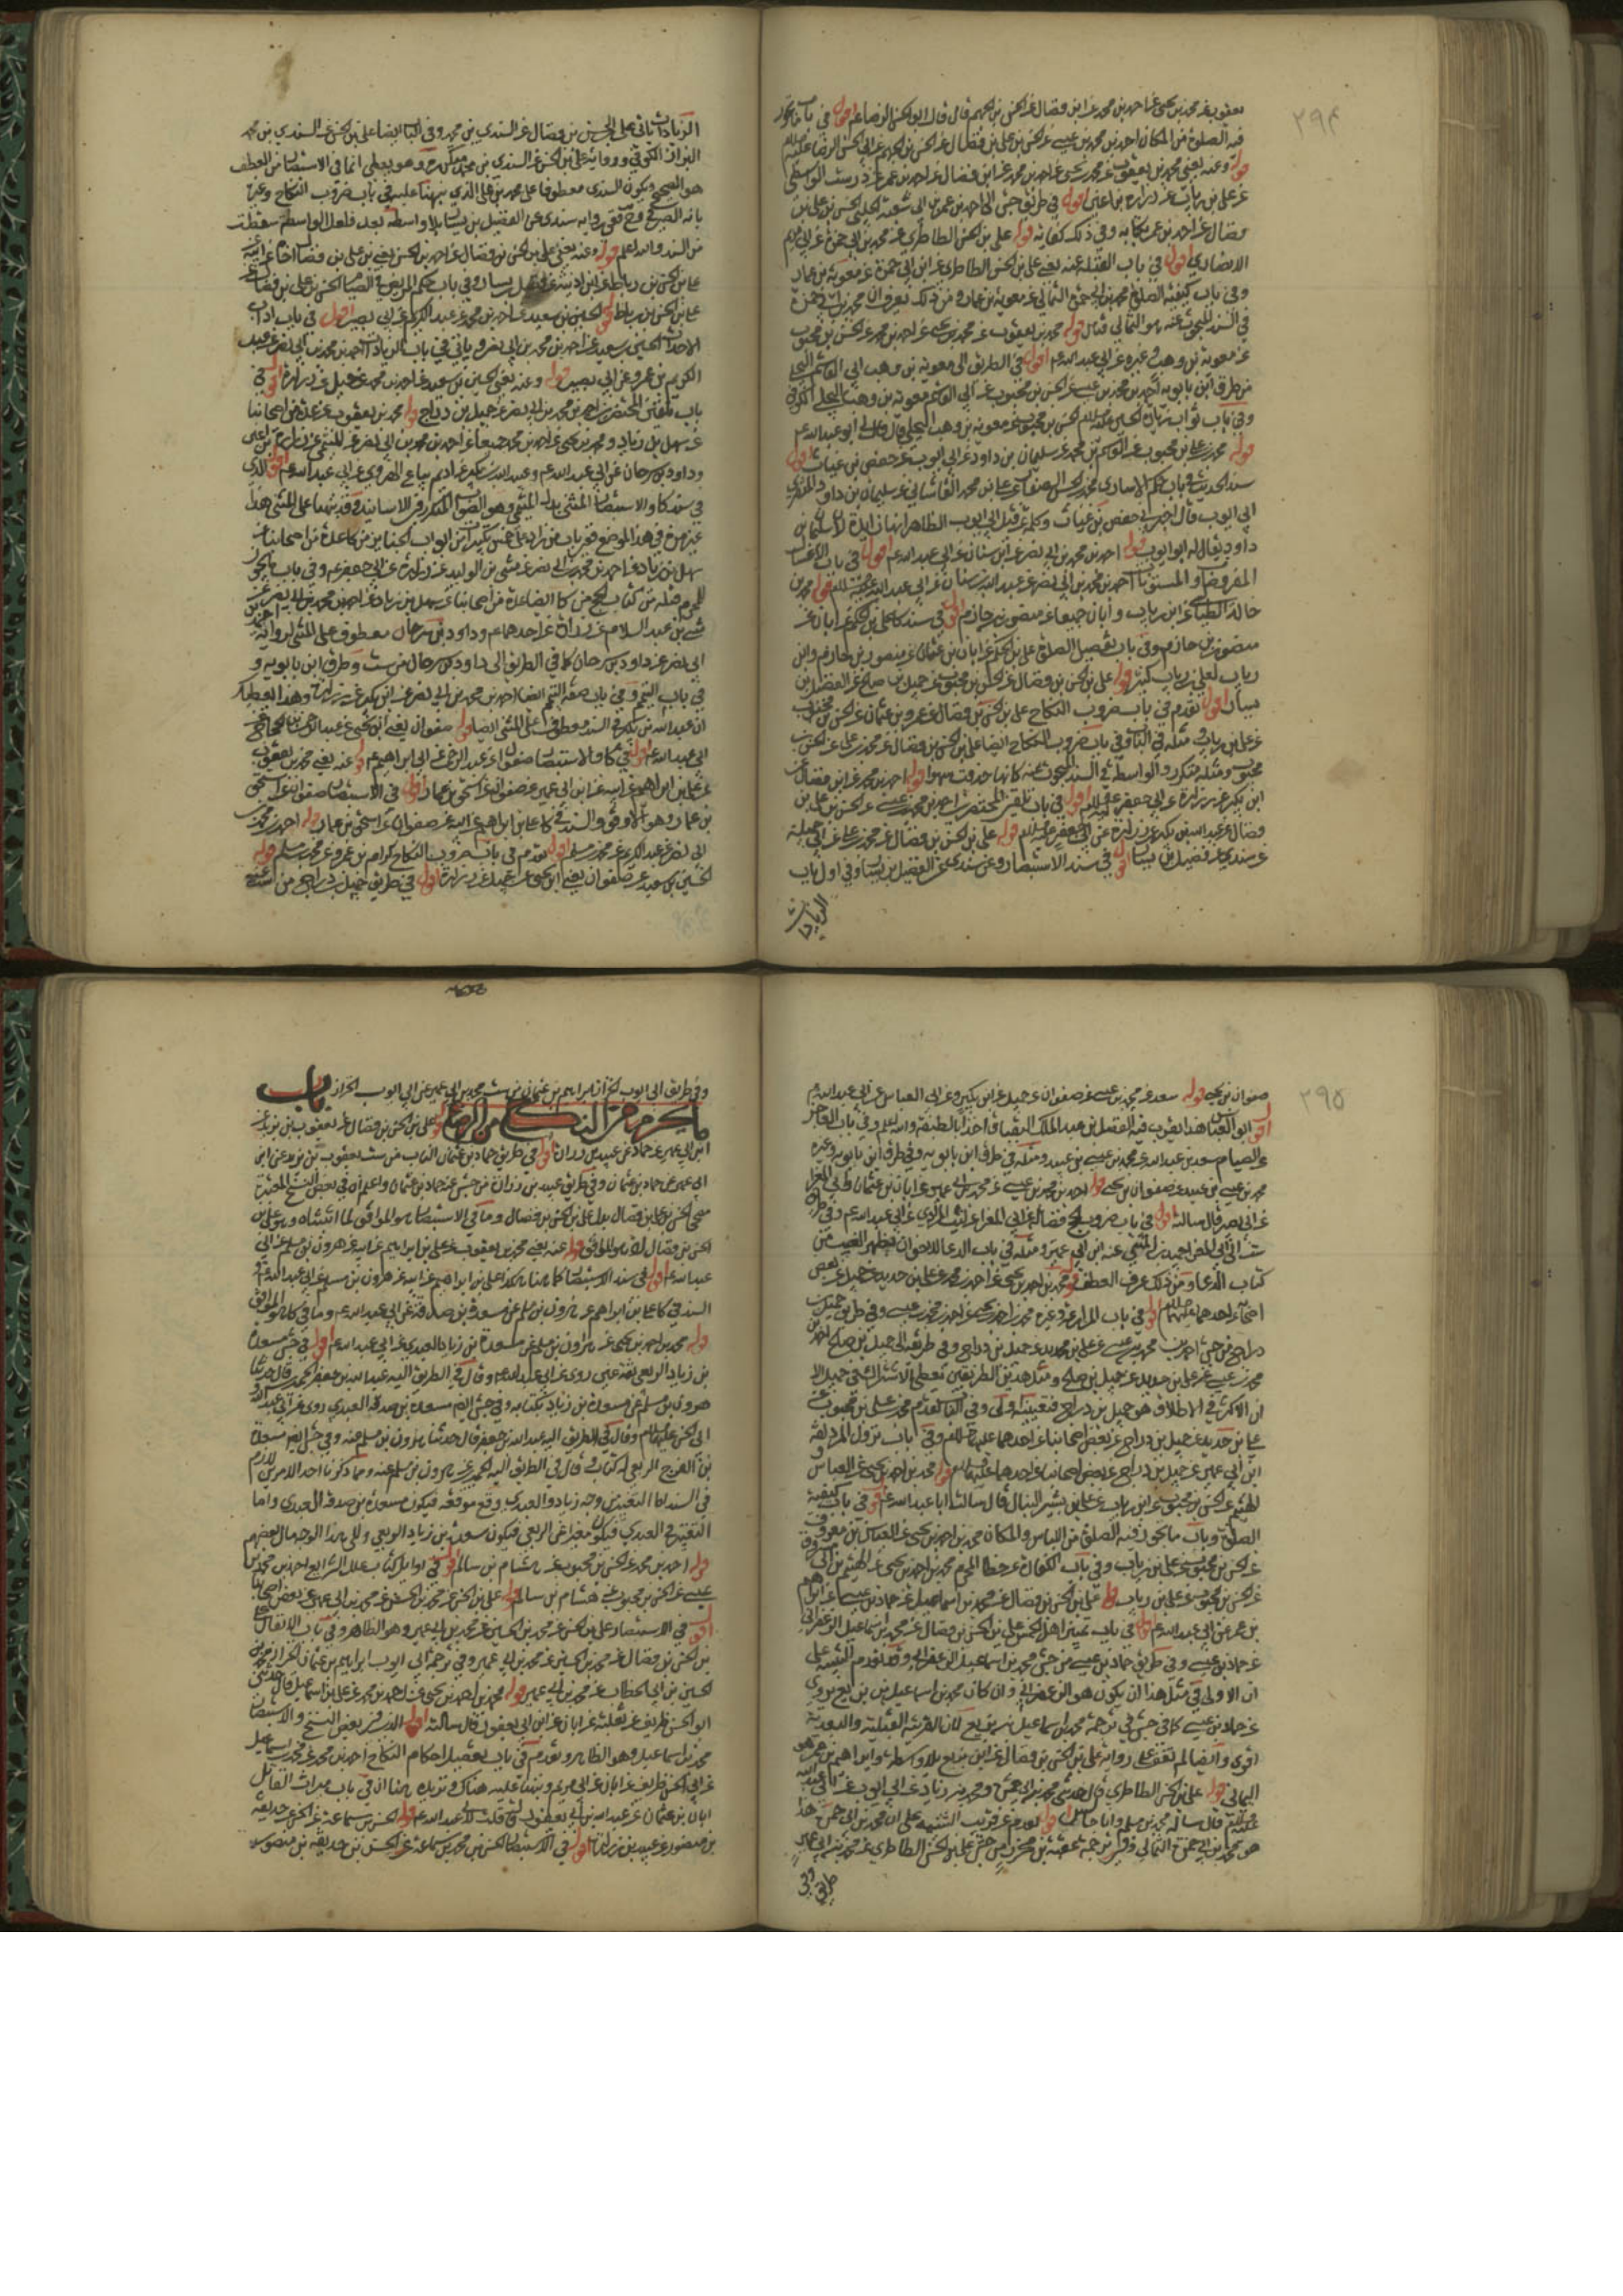 ٢٩٤
يعقوب عن محمد بن يحيى عن احمد بن محمد عن ابن فضال عن الحسن بن الجهم قال قال ابو الحسن الرضا ع اقول في باب ما يجوز
فيه الصلوة من المكان احمد بن محمد بن عيسى عن الحسن بن علي بن فضال عن الحسن بن الجهم عن ابي الحسن الرضا عليه السلم
قوله وعنه يعني محمد بن يعقوب عن محمد بن يحيى عن احمد بن محمد عن ابن فضال عن احمد بن عمر عن درست الواسطي
عن علي بن رباب عن زرارة بن اعين اقول في طريق جش الى احمد بن عمر بن ابي شعبة الحلبي الحسن بن علي بن
فضال عن احمد بن عمر بكتابه وفي ذلك كفاية قوله علي بن الحسن الطاطري عن محمد بن ابي حمزة عن ابي مريم
الانصاري اقول في باب القبلة عنه يعني علي بن الحسن الطاطري عن ابن ابي حمزة عن معوية بن عمار
وفي باب كيفية الصلوة محمد بن ابي حمزة الثمالي عن معوية بن عمار ومن ذلك يعرف ان محمد بن ابي حمزة
في السند المبحوث عنه هو الثمالي قوله محمد بن يعقوب عن محمد بن يحيى عن احمد بن محمد عن الحسن بن محبوب
عن معوية بن وهب وغيره عن ابي عبد الله ع اقول في الطريق الى معوية بن وهب ابي القاسم البجلي
من طرق ابن بابويه احمد بن محمد بن عيسى عن الحسن بن محبوب عن ابي القاسم معوية بن وهب البجلي الكوفي
وفي باب ثواب زيارة الحسين عليه السلم الحسن بن محبوب عن معوية بن وهب البجلي قال قال لي ابو عبد الله ع
قوله محمد بن علي بن محبوب عن القاسم بن محمد عن سليمان بن داود عن ابي ايوب عن حفص بن غياث اقول
ابي ايوب قال اخبرني حفص بن غياث وكلمة عن قبل ابي ايوب الظاهر انها زايدة لان سليمان بن
داود يقال له ابو ايوب قوله احمد بن محمد بن ابي نصر عن ابن سنان عن ابي عبد الله ع اقول في باب الاغسال
المفروضات والمسنونات احمد بن محمد بن ابي نصر عن عبد الله بن سنان عن ابي عبد الله عليه السلم قوله محمد بن
خالد الطيالسي عن ابن رياب وابان جميعا عن منصور بن حازم اقول في سند كا علي بن الحكم عن ابان عن
منصور بن حازم وفي باب تفصيل الصلوة علي بن الحكم عن ابان بن عثمان عن منصور بن حازم وابن
رياب لعلي بن رياب كثير قوله علي بن الحسن بن فضال عن الحسن بن محبوب عن جميل بن صالح عن الفضيل بن
يسار اقول تقدم في باب ضروب النكاح علي بن الحسن بن فضال عن عمرو بن عثمان عن الحسن بن محبوب
عن علي بن رياب ومثله في الباب وفي باب ضروب النكاح ايضا علي بن الحسن بن فضال عن محمد بن علي عن الحسن بن
محبوب ومثله متكرر والواسطة في السند المبحوث عنه كانها حذفت سهوا قوله احمد بن محمد عن ابن فضال عن
ابن بكير عن زرارة عن ابي جعفر عليه السلم اقول في باب تلقين المحتضرين احمد بن محمد بن عيسى عن الحسن بن علي بن
فضال عن عبد الله بن بكير عن زرارة عن ابي جعفر عليه السلم قوله علي بن الحسن بن فضال عن محمد بن علي عن ابي جميلة
عن سندي عن فضيل بن يسار اقول في سند الاستبصار وعن سندي عن الفضيل بن يسار وفي اول باب
الزيادات
الزيادات ثاني علي بن الحسن بن فضال عن السندي بن محمد وفي الباب ايضا علي بن الحسن عن السندي بن محمد
البزاز الكوفي ورواية علي بن الحسن عن السندي بن محمد ممكن وهو يعطي انما في الاستبصار من العطف
هو الصحيح ويكون السندي معطوفا على محمد بن علي الذي نبهنا عليه في باب ضروب النكاح وعنه
بانه الصحيح وح ففي رواية سندي عن الفضيل بن يسار بلا واسطة بعد فلعل الواسطة سقطت
من السند والله اعلم قوله وعنه يعني علي بن الحسن بن فضال عن احمد بن الحسن يعني بن علي بن فضال اخاه عن ابيه
علي بن الحسن بن رباط عن
علي بن الحسن بن رباط قوله الحسين بن سعيد عن احمد بن محمد عن عبد الكريم عن ابي بصير اقول في باب اداب
الاحداث الحسين بن سعيد عن احمد بن محمد بن ابي نصر وياتي في باب الزيادات احمد بن محمد بن ابي نصر عن عبد
الكريم بن عمرو عن ابي بصير قوله وعنه يعني الحسين بن سعيد عن احمد بن محمد عن جميل عن زرارة اقول في
باب تلقين المحتضرين احمد بن محمد بن ابي نصر عن جميل بن دراج قوله محمد بن يعقوب عن عدة من اصحابنا
عن سهل بن زياد ومحمد بن يحيى عن احمد بن محمد جميعا عن احمد بن محمد بن ابي نصر عن المثنى عن زرارة بن اعين
وداود بن سرحان عن ابي عبد الله ع وعبد الله بن بكير عن اديم بياع الهروي عن ابي عبد الله ع اقول الذي
في سند كا والاستبصار المثنى بدل الميثمي وهو الصواب المتكرر في الاسانيد وقد نبهنا على المثنى هذا
سهل بن زياد عن احمد بن محمد بن ابي نصر عن مثنى بن الوليد عن زرارة عن ابي جعفر ع وفي باب ما يجوز
للمحرم قتله من كتاب الحج من كا ايضا عدة من اصحابنا عن سهل بن زياد عن احمد بن محمد بن ابي نصر عن
مثنى بن عبد السلام عن زرارة عن احدهما ع وداود بن سرحان معطوف على المثنى لرواية احمد بن
ابي نصر عن داود بن سرحان كما في الطريق الى داود بن سرحان من ست وطرق ابن بابويه و
في باب التيمم وفي باب صفة التيمم ايضا احمد بن محمد بن ابي نصر عن ابن بكير عن زرارة وهذا يعطيك
ان عبد الله بن بكير في السند معطوف على المثنى ايضا قوله صفوان يعني ابن يحيى عن عبد الرحمن بن الحجاج عن
ابي عبد الله ع اقول في كا والاستبصار صفوان عن عبد الرحمن عن ابي ابراهيم ع قوله عنه يعني محمد بن يعقوب
عن علي بن ابراهيم عن ابيه عن ابن ابي عمير عن صفوان عن اسحق بن عمار اقول في الاستبصار صفوان عن اسحق
بن عمار وهو الاوفق والسند في كا علي بن ابراهيم عن ابيه عن صفوان عن اسحق بن عمار قوله احمد بن محمد بن
ابي نصر عن عبد الكريم عن محمد بن مسلم اقول تقدم في باب ضروب النكاح كرام بن عمرو عن محمد بن مسلم قوله
الحسين بن سعيد عن صفوان يعني ابن يحيى عن جميل عن زرارة اقول في طريق جميل بن دراج من
٢٩٥
صفوان بن يحيى قوله سعد عن محمد بن عيسى عن صفوان عن جميل عن ابن بكير وعن ابي العباس عن ابي عبد الله ع
اقول ابو العباس هذا يقرب فيه الفضل بن عبد الملك البقباق اخذا بالطبقة والله اعلم وفي باب العاجز
عن الصيام سعد بن عبد الله عن محمد بن عيسى بن عبيد ومثله في طرق ابن بابويه وفي طرق ابن بابويه وغيره
محمد بن عيسى بن عبيد عن صفوان بن يحيى قوله احمد بن محمد بن عيسى عن محمد بن ابي عمير عن ابان بن عثمان وابي المغرا
عن ابي بصير قال سالته اقول في باب ضروب الحج فضالة عن ابي المغرا عن ليث المرادي عن ابي عبد الله ع وفي طريق
كتاب الدعا ومن ذلك عرف العطف قوله محمد بن احمد بن يحيى عن احمد بن محمد عن علي بن حديد عن جميل عن بعض
اصحابنا عن احدهما عليهما السلام اقول
دراج من جش احمد بن محمد بن عيسى عن علي بن حديد عن جميل بن دراج وفي طريقه الى جميل بن صالح احمد بن
محمد بن عيسى عن علي بن حديد عن جميل بن صالح ومثل هذين الطريقين يعطي الاشتراك في جميل الا
ان الاكثر في الاطلاق هو جميل بن دراج فتعيينه اولى وفي الباب تقدم محمد بن علي بن محبوب عن
علي بن حديد عن جميل بن دراج عن بعض اصحابنا عن احدهما عليهما السلم وفي باب نزول المزدلفة
ابن ابي عمير عن جميل بن دراج عن بعض اصحابنا عن احدهما عليهما السلم قوله محمد بن احمد بن يحيى عن العباس و
الهيثم عن الحسن بن محبوب عن ابن رياب عن علي بن بشير النبال قال سالت ابا عبد الله ع اقول في باب كيفية
الصلوة وباب ما يجوز فيه الصلوة من اللباس والمكان محمد بن احمد بن يحيى عن العباس بن معروف
عن الحسن بن محبوب عن علي بن رياب وفي باب الكفارة عن خطا المحرم محمد بن احمد بن يحيى عن الهيثم بن ابي مسروق
عن الحسن بن محبوب عن علي بن رياب قوله علي بن الحسن بن فضال عن محمد بن اسماعيل عن حماد بن عيسى عن ابراهيم
بن عمر عن ابي عبد الله ع اقول في باب تمييز اهل الخمس علي بن الحسن بن فضال عن محمد بن اسماعيل الزعفراني
عن حماد بن عيسى وفي طريق حماد بن عيسى من جش محمد بن اسماعيل الزعفراني وقد تقدم التنبيه على
ان الاولى في مثل هذا ان يكون هو الزعفراني وان كان محمد بن اسماعيل بن بزيع يروي
عن حماد بن عيسى كما في جش في ترجمة محمد بن اسماعيل بن بزيع لان القرينة القبلية والبعدية
اقوى وايضا لم نقف على رواية علي بن الحسن بن فضال عن ابن بزيع بلا واسطة وابراهيم بن عمر هو
اليماني قوله علي بن الحسن الطاطري قال حدثني محمد بن ابي حمزة ومحمد بن زياد عن ابي ايوب عن ابي عبد الله
عليه السلم قال ساله محمد بن مسلم وانا جالس اقول تقدم عن قريب التنبيه على ان محمد بن ابي حمزة هذا
هو محمد بن ابي حمزة الثمالي وفي ترجمة عقبة بن محرز من جش علي بن الحسن الطاطري عن محمد بن ابي عمير
وفي طريق
وفي طريق ابي ايوب الخزاز ابراهيم بن عثمان من ست محمد بن ابي عمير عن ابي ايوب الخزاز باب
ما يحرم من النكاح من الرضاع قوله علي بن الحسن بن فضال عن يعقوب بن يزيد عن
ابن ابي عمير عن حماد عن عبيد بن زرارة اقول في طريق حماد بن عثمان الناب من ست يعقوب بن يزيد عن ابن
ابي عمير عن حماد بن عثمان وفي طريق عبيد بن زرارة من جش عنه حماد بن عثمان واعلم ان في بعض النسخ المعتبرة
الحسن بن فضال لانه هو الموافق قوله عنه يعني محمد بن يعقوب عن علي بن ابراهيم عن ابيه عن هرون بن مسلم عن ابي
عبد الله ع اقول في سند الاستبصار كما هنا هكذا علي بن ابراهيم عن ابيه عن هرون بن مسلم عن ابي عبد الله ع و
السند في كا علي بن ابراهيم عن هرون بن مسلم عن مسعدة بن صدقة عن ابي عبد الله ع وما في كا هو الموافق
قوله محمد بن احمد بن يحيى عن هرون بن مسلم عن مسعدة بن زياد العبدي عن ابي عبد الله ع اقول في جش مسعدة
بن زياد الربعي ثقة عين روى عن ابي عبد الله ع وقال في الطريق اليه عبد الله بن جعفر الحميري قال حدثنا
هرون بن مسلم عن مسعدة بن زياد بكتابه وفي جش ايضا مسعدة بن صدقة العبدي روى عن ابي عبد الله
ابي الحسن عليهما السلم وقال في الطريق اليه عبد الله بن جعفر قال حدثنا هرون بن مسلم عنه وفي جش ايضا مسعدة
بن الفرج الربعي له كتاب وقال في الطريق اليه الحميري عن هرون بن مسلم عنه ومما ذكرنا احد الامرين لازم
في السند اما التغيير من وجه زياد والعبدي وقع موقعه فيكون مسعدة بن صدقة العبدي واما
التغيير في العبدي فيكون مغيرا عن الربعي فيكون مسعدة بن زياد الربعي ولكل من هذا الوجه مال بعضهم
قوله احمد بن محمد عن الحسن بن محبوب عن هشام بن سالم اقول في اوايل كتاب علل الشرايع احمد بن محمد بن
عيسى عن الحسن بن محبوب عن هشام بن سالم قوله علي بن الحسن عن محمد بن الحسن عن محمد بن ابي عمير عن بعض اصحابنا
اقول في الاستبصار علي بن الحسن عن محمد بن الحسين عن محمد بن ابي عمير وهو الظاهر وفي باب الانفال علي
بن الحسن بن فضال عن محمد بن الحسين عن محمد بن ابي عمير وفي ترجمة ابي ايوب ابراهيم بن عثمان الخزاز محمد بن
الحسين بن ابي الخطاب عن محمد بن ابي عمير قوله محمد بن احمد بن يحيى عن احمد بن محمد عن علي بن اسماعيل قال حدثني
ابو الحسن ظريف عن ثعلبة عن ابان عن ابن ابي يعفور قال سالته اقول الذي في بعض النسخ والاستبصار
محمد بن اسماعيل وهو الظاهر وتقدم في باب تفصيل احكام النكاح احمد بن محمد عن محمد بن اسماعيل
عن ابي الحسن ظريف عن ابان عن ابي مريم ونبهنا عليه هناك ونزيده هنا ان في باب ميراث القاتل
ابان بن عثمان عن عبد الله بن ابي يعفور قال قلت لابي عبد الله ع قوله الحسن بن سماعة عن الحسن بن حذيفة
بن منصور عن عبيد بن زرارة اقول في الاستبصار الحسن بن محمد بن سماعة عن الحسن بن حذيفة بن منصور